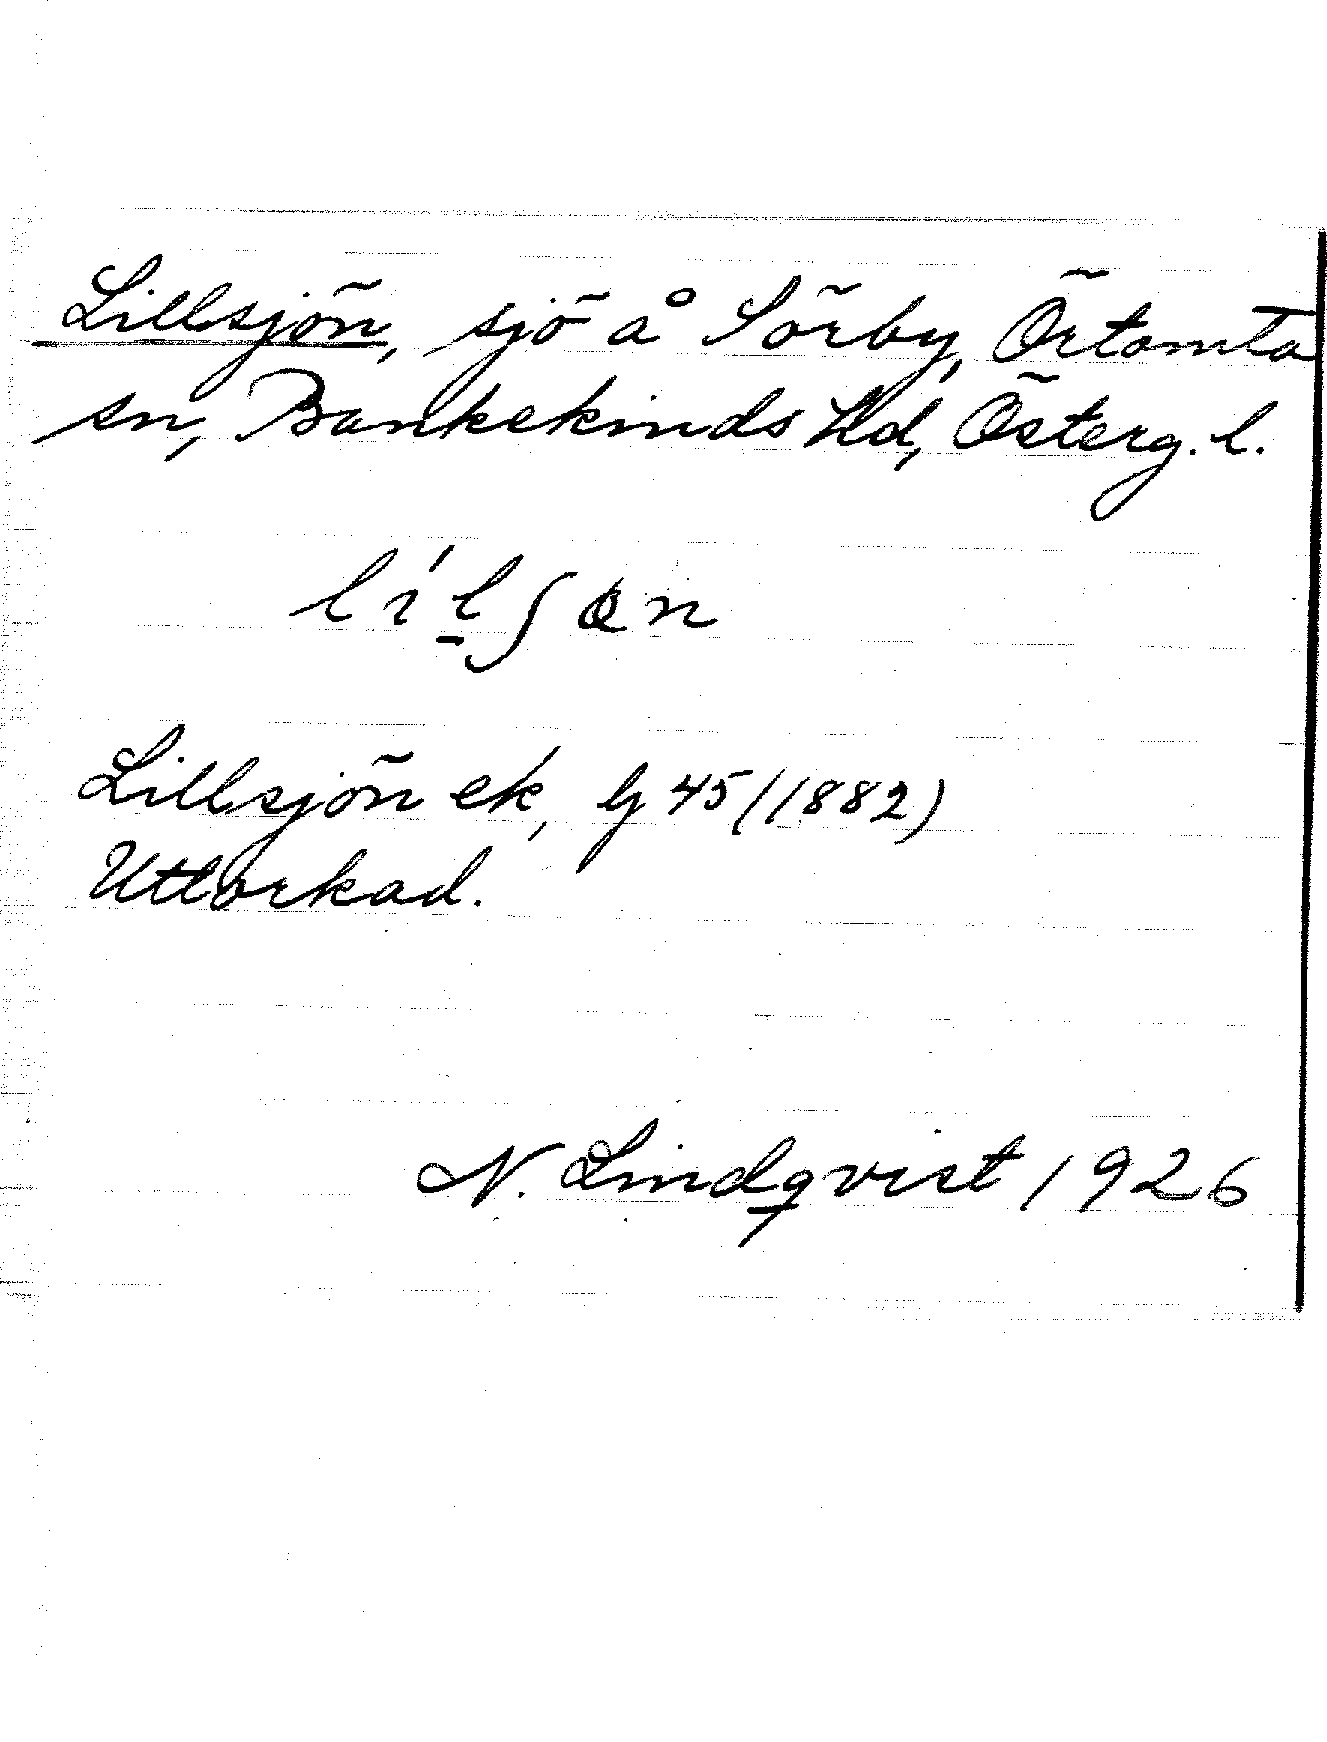 Lillsjön, sjö å Sörby, Örtomta
sn, Bankekinds Hd, Österg. l.
lílʃøn
Lillsjön ek, lj 45 (1882)
Uttorkad.
N. Lindqvist 1926